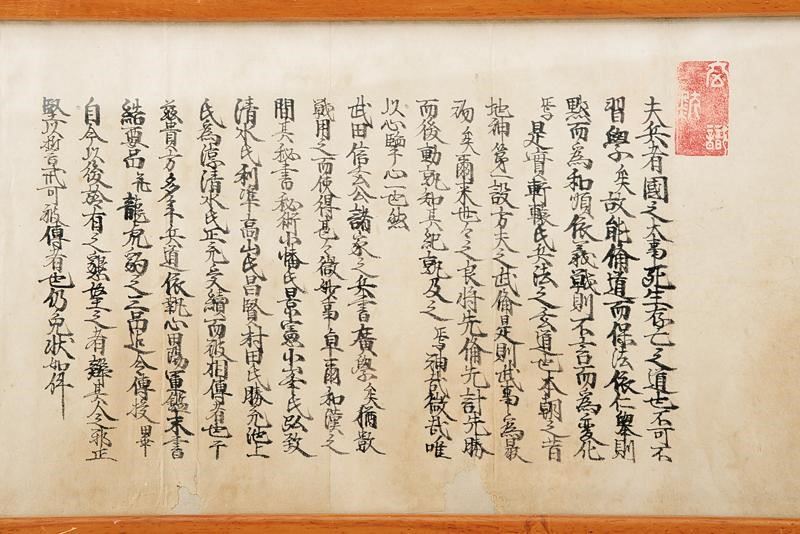 夫兵者國之大事死生存亡之道也不可不
習學矣故能脩道而保法依仁舉則
默而爲和順依義戰則不言而爲變化
焉是實軒轅氏兵法之玄道也本朝之昔
地神第一設方夫之武備是則武事之爲最
矣爾来世々之良將先備先計先勝
而後動孰知其紀孰及之焉神哉微哉唯
以心擊心也然
武田信玄公諸家之兵書廣學矣猶數
戰用之而使得甚々微妙事卓爾和漢之
間其秘書秘術小幡氏景憲小峯氏弘致
清水氏利準高山氏昌賢村田氏勝充池上
氏爲凉清水氏正充交續而被相傳者也于
茲貴方多年兵道依執心甲陽軍鑑末書
結要品元龍虎豹之三品迄令傳授畢
自今以後於有之懇望之者糺其人之邪正
堅以誓戒可被傳者也仍免状如件